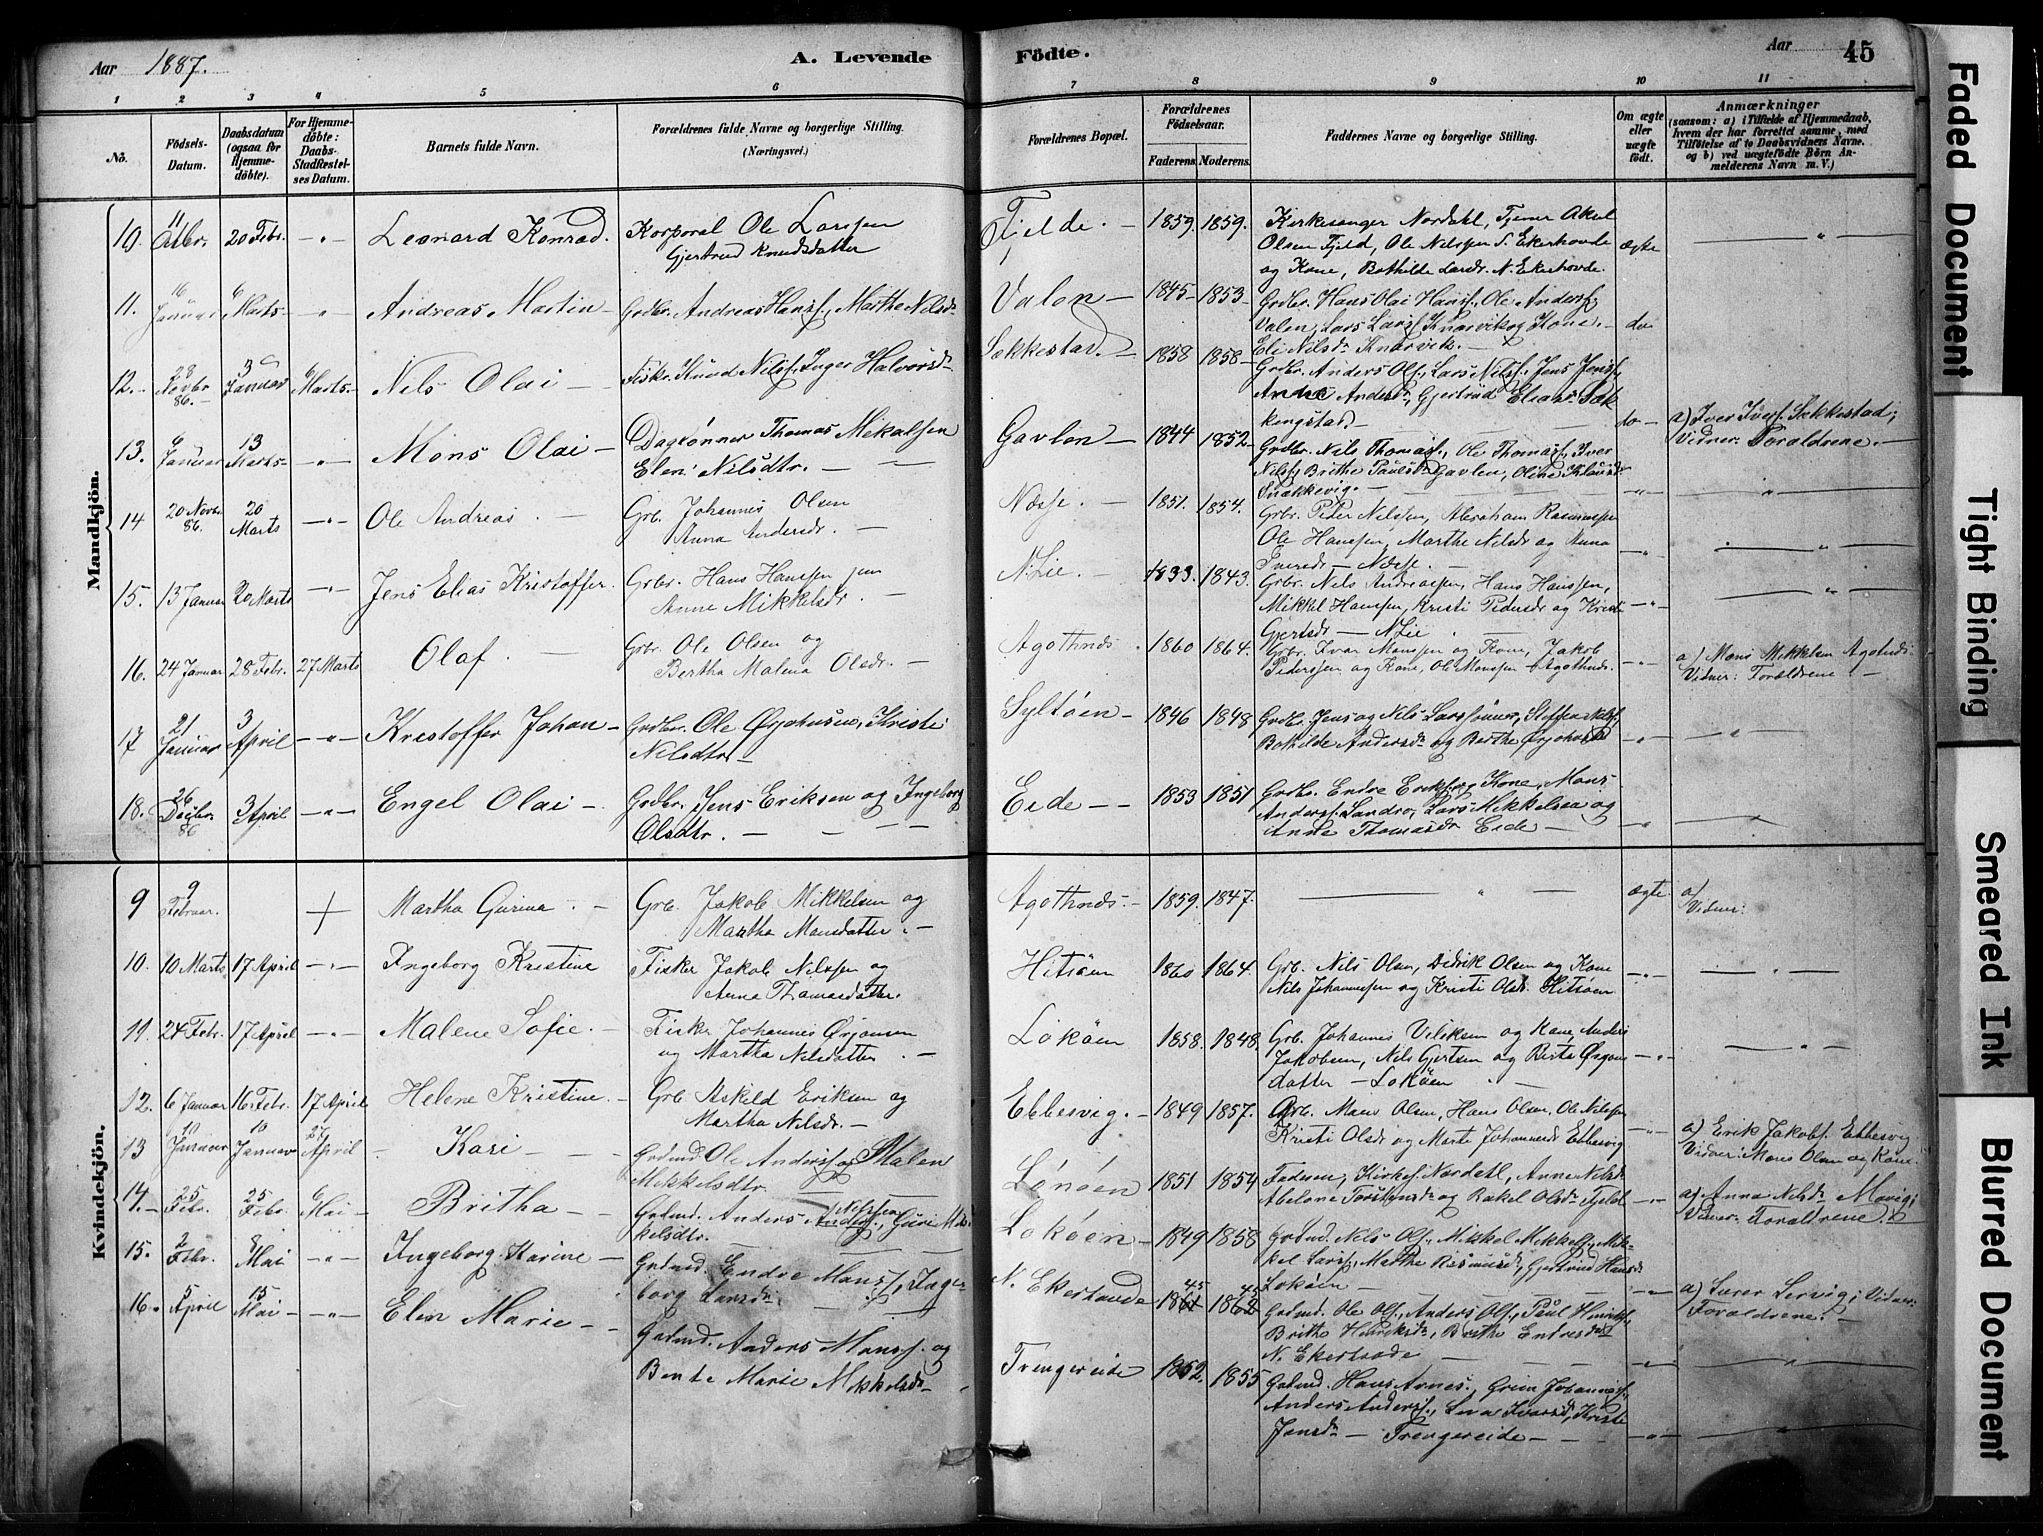 Aar 1887.
A. Levende Födte.
Aar
45
1 2 3 4 5 6 7 8 9 10 11
No.
Födsels-Datum.
Daabsdatum (ogsaa for Hjemme-döbte).
For Hjemme-döbte: Daabs-Stadfæstel-ses Datum.
Barnets fulde Navn.
Forældrenes fulde Navne og borgerlige Stilling. (Næringsvei.)
Forældrenes Bopæl.
Forældrenes Födselsaar.
Faderens. Moderens.
Faddernes Navne og borgerlige Stilling.
Om ægte eller uægte födt.
Anmærkninger
(saasom: a) i Tilfælde af Hjemmedaab, hvem der har forrettet samme, med Tilföielse af to Daabsvidners Navne. og b) ved uægtefödte Börn An-melderens Navn m. V.)
Mandkjön.
10. 11 Octbr. 20 Febr. -"- Leonard Konrad. Korporal Ole Larssen
Gjertrud Knudsdatter
Fjelde. - 1859. 1859. Kirkesanger Nordahl, Tjener Aksel
Olsen Fjeld, Ole Nilssen S. Ekerhovde ægte
og Kone, Bothilde Larsdr. N. Ekerhovde.
11. 16 Januar 6 Marts -"- Andreas Martin - Grdbr. Andreas Hansf., Marthe Nilsdr
Valen - 1845- 1853- Grdbr. Hans Olai Hansf., Ole Andersf.
Valen, Lars Larsf. Knarvik og Kone. - do
Eli Nilsdr Knarvik. -
12. - 28 Novbr 86. - 3 Januar 6 Marts - Nils Olai - Fiskr. Knud Nilsf. Inger Halvorsdr
Sækkestad. - 1858 1858-
Grdbr. Anders Olf., Lars Nilsf. Jens Jensf.
Anna Andersdr, Gjertrud Eliasdr Sæk
kingstad. - do - a) Iver Iverf. Sekkestad;
Vidner: Foraldrene. -
13. 6 Januar 13 Marts - -"- Mons Olai - Dagkønner Thomas Mikalsen
Elen Nilsdtr. -
Gavlen - 1844 1852- Grdbr. Nils Thomasf., Ole Thomasf., Iver
Nilsf., Brithe Paulsdr Gavlen, Oline Klausdr
Snekkevig. -
14 20 Novbr 86. 20 Marts -"- Ole Andreas. - Grb. Johannes Olsen
Anna Andersdr. -
Næsse. - 1851. 1854. Grbr. Peder Nilssen, Abraham Rasmussen
Ole Hanssen, Marthe Nilsdr og Anna
Iversdr - Næsse. -
15. 13 Januar 20 Marts -"- Jens Elias Kristoffer. Grbr. Hans Hanssen jun
Anne Mikkelsdr. -
N. Lie. - 1833. 1843. Grbr. Nils Andreassen, Hans Hanssen,
Mikkel Hanssen, Kristi Pedersdr og Kristi -"-
Gjertsdr - N Lie
16. 24 Januar 28 Febr. 27 Marts Olaf. - Grbr. Ole Olsen og
Bertha Malena Olsdr. -
Agothnæs. 1860 1864. Grbr. Ivar Monssen og Kone, Jakob
Pederssen og Kone, Ole Monssen Agothnæs. -"- a) Mons Mikkelsen Agotnæs.
Vidner: Forældrene. -
17 21 Januar 3 April -"- Kristoffer Johan - Grdbr. Ole Ørjohnsen, Kristi
Nilsdtr -
Syltöen - 1846 1848 Grdbr. Jens og Nils Larssönner, Steffen Nilsf.
Bothilde Andersdr og Berthe -"-
18. 26 Decbr. 86 3 April -"- Engel Olai - Grdbr. Jens Eriksen og Ingeborg
Olsdtr. -
Eide - - 1853 1851 Grdbr. Endre Erikf. og Kone, Mons
Andersf. Landro, Lars Mikkelsen og
Anne Thomasdr Eide -
Kvindekjön.
9 9 Februar. + Martha Gurina. - Grb. Jakob Mikkelsen og
Martha Monsdatter. -
Agothnæs. - 1859. 1847. - " - ægte. a/
Vidner:
10. 10 Marts 17 April -"- Ingeborg Kristine Fisker Jakob Nilssen og
Anna Thomasdatter.
Hitsöen 1860 1864. Grb. Nils Olsen, Didrik Olsen og Kone
Nils Johannessen og Kristi Olsdr. Hitsöen -"-
11. 24 Febr. 17 April -"- Malene Sofie. - Fisker Johannes Ørjansen
og Martha Nilsdatter. -
Loköen 1858. 1848. Grb. Johannes Villiksen og Kone, Anders
Jakobsen, Nils Gjertsen og Berta Ørjans -"-
datter - Loköen
12. 6 Januar 16 Febr. 17 April Helene Kristine. - Grb Askild Eriksen og
Martha Nilsdr. -
Ebbesvig. - 1849 1857. Grb. Mons Olsen, Hans Olsen, Ole Nilssen
Kristi Olsdr og Marta Johannesdr Ebbesvig -"- a) Erik Jakobf. Ebbesvig
Vidner: Mons Olsen og Kone.
13 10 Januar 10 Januar 27 April - Kari - Grdmd Ole Andersf. og Malen
Mikkelsdtr.
Lönöen 1851 1854 Faderen, Kirkes. Nordahl, Anne Nilsdr
Abelone Torstensdr og Rakel Olsdr Fjeld -"- a) Anna Nilsdr Movig;
Vidner: Foraldrene.
14. - 25 Febr. 25 Febr. 6 Mai - Britha - Grdmd. Anders Nilssen Andersf., Guri Mik
kelsdtr.
Loköen - 1849 1858 Grdmd. Nils Olf., Mikkel Mikkelf., Mik-
kel Larsf., Marthe Rasmusdr, Gjertrud Hansdr
Loköen -
15. 2 Febr. 8 Mai -"- Ingeborg Karine - Grdmd. Endre Monsf., Inge-
borg Larsdr.
N. Ekerhovde 1861 45 1862 45 Grdmd. Ole Olf., Anders Olf., Paul Henrikf.,
Brithe Henriksdr, Brithe Endresdr
N. Ekerhovde - a) Lærer Lervig; Vidner:
Foraldrene. -
16. 5 April 15 Mai - -"- Elen Marie - - Grdmd. Anders Monsf. og
Bente Marie Mikkelsdr -
Trengereide 1852 1855 Grdmd. Hans Arnes., Grim Johannesf.,
Anders Andersf., Lena Ivarsdr, Kristi
Jensdr - Trengereide -
Faded Document
Tight Binding
Smeared Ink
Blurred Document